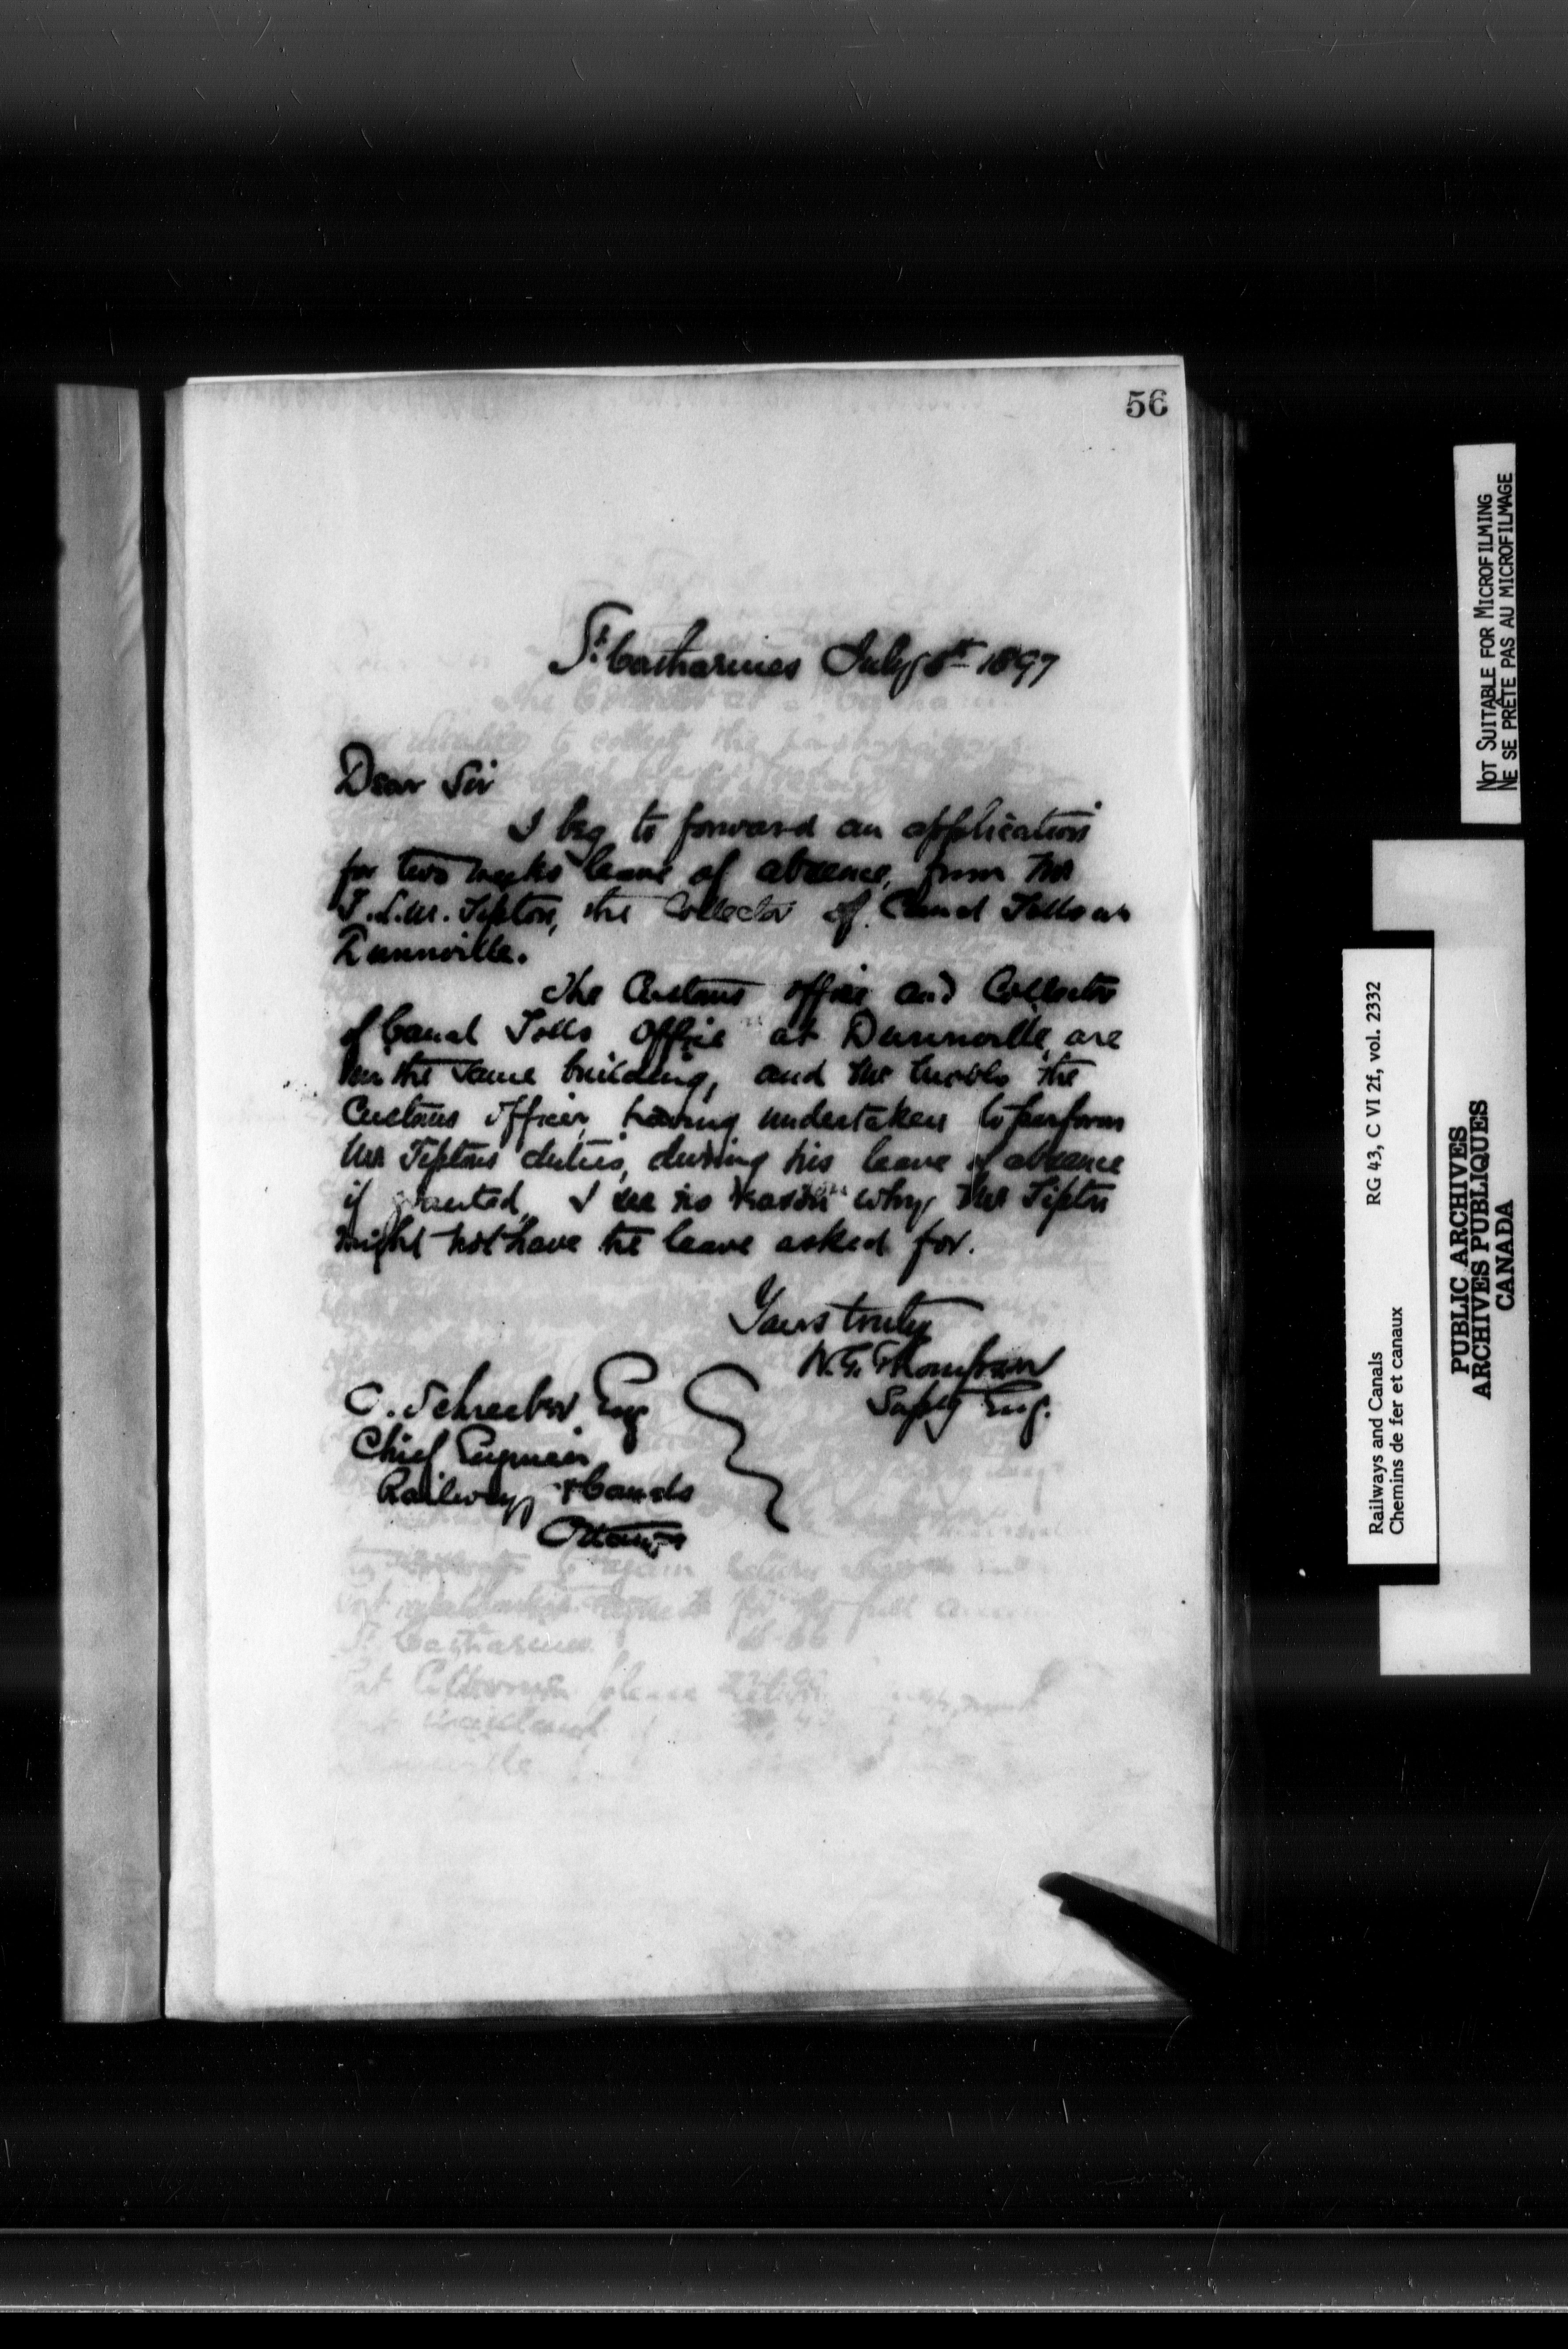 56
St. Catharines July 8th 1897
Dear Sir
I beg to forward an application
for two weeks leave of absence, from Mr
T.L.M. Tipton, the Collector of Canal Tolls at
Dunnville.
The Customs office and Collector
of Canal Tolls Office at Dunnville, are
in the same building, and Mr the
Customs Officer, having undertaken to perform
Mr Tiptons duties, during his leave of absence
if granted, I see no reason why Mr Tipton
might not have the leave asked for.
Yours truly
W.G. Thompson
Suptg Eng.
C. Schreiber Esq
Chief Engineer
Railways & Canals
Ottawa
NOT SUITABLE FOR MICROFILMING
NE SE PRÊTE PAS AU MICROFILMAGE
Railways and Canals RG 43, C VI 2f, vol. 2332
Chemins de fer et canaux
PUBLIC ARCHIVES
ARCHIVES PUBLIQUES
CANADA